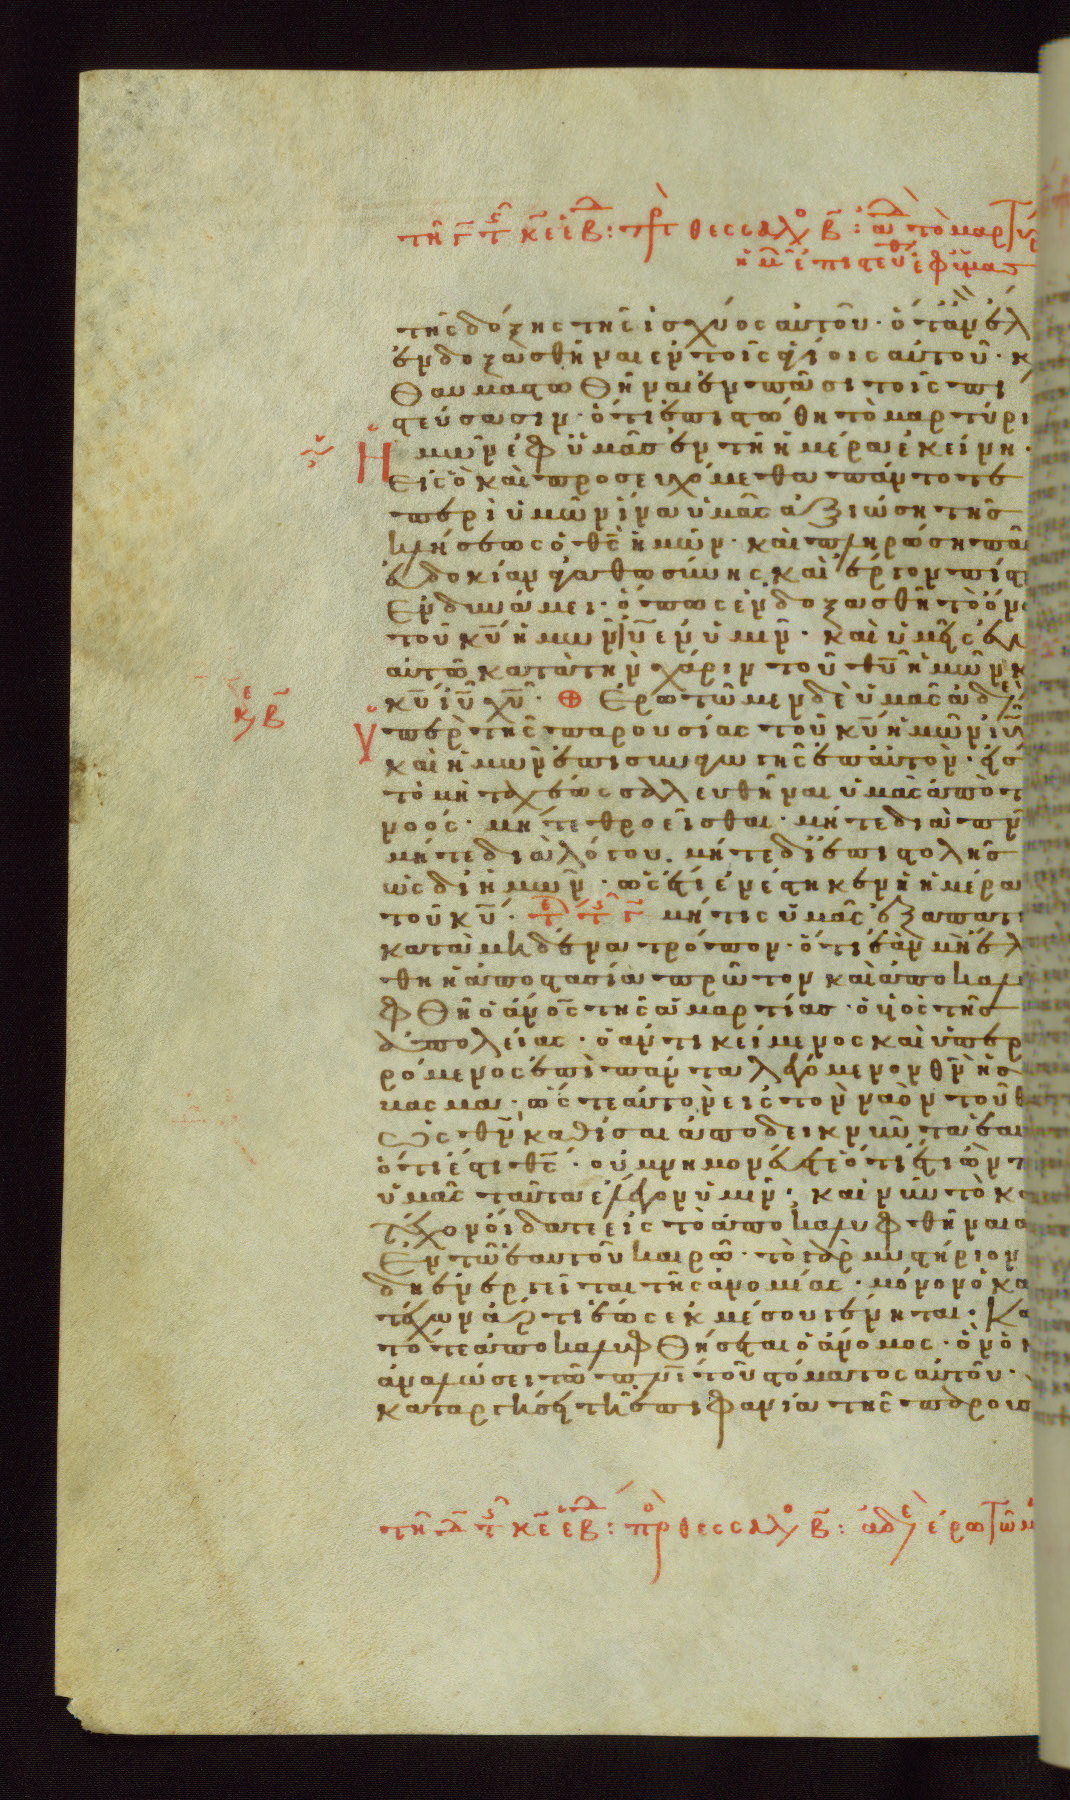 τῆς δόξης τῆς ἰσχύος αὐτοῦ · ὅταν ἔλ
ἐνδοξασθῆναι ἐν τοῖς ἁγίοις αὐτοῦ · κ
θαυμαστωθῆναι ἐν πᾶσι τοῖς πι
στεύσασιν · ὅτι ἐπιστώθη τὸ μαρτύρι
Ημῶν ἐφ ὑμᾶς ἐν τῆ ἡμέρα ἐκείνη ·
εἰς ὃ καὶ προσευχόμεθα πάντοτε
περὶ ὑμῶν ἵνα ὑμᾶς ἀξιώση τῆς
κλήσεως ὁ θς ἡμῶν · καὶ πληρώση πᾶ
εὐδοκίαν ἀγαθωσύνης καὶ ἔργον πίστ
ἐν δυνάμει · ὅπως ἐνδοξασθῆ τὸ ὄνο
τοῦ κυ ἡμῶν ιυ ἐν ὑμῖν · καὶ ὑμεῖς ἐν
αὐτῶ κατὰ τὴν χάριν τοῦ θυ ἡμῶν κ
κυ ιυ χυ · ⊕ Ἐρωτῶμεν δὲ ὑμᾶς ἀδε
ὑπὲρ τῆς παρουσίας τοῦ κυ ἡμῶν ιυ
καὶ ἡμῶν ἐπισυναγωγῆς ἐπ αὐτόν · εἰς
τὸ μὴ ταχέως σαλευθῆναι ὑμᾶς ἀπὸ τ
νοός · μήτε θροεῖσθαι · μήτε διὰ πν
μήτε διὰ λόγου · μήτε δι ἐπιστολῆς
ὡς δι ἡμῶν · ὡς ὅτι ἐνέστηκεν ἡ ἡμέρα
τοῦ κυ · μή τις ὑμᾶς ἐξαπατ
κατὰ μηδένα τρόπον · ὅτι ἐὰν μὴ ἔλ
θη ἡ ἀποστασία πρῶτον καὶ ἀποκαλυ
φθῆ ὁ ἀνος τῆς ἁμαρτίας · ὁ υἱὸς τῆς
ἀπωλείας · ὁ ἀντικείμενος καὶ ὑπερ
ρόμενος ἐπὶ πάντα λεγόμενον θν ἢ σ
βασμα · ὥστε αὐτὸν εἰς τὸν ναὸν τοῦ θ
ὡς θν καθίσαι ἀποδεικνύντα ἑαυ
ὅτι ἐστι θς · οὐ μνημονεύετε ὅτι ἔτι ὢν π
ὑμᾶς ταῦτα ἔλεγον ὑμῖν · καὶ νῦν τὸ κα
τέχον οἴδατε εἰς τὸ ἀποκαλυφθῆναι α
ἐν τῶ ἑαυτοῦ καιρῶ · τὸ γὰρ μυστήριον
δη ἐνεργεῖται τῆς ἀνομίας · μόνον ὁ κα
τέχων ἄρτι ἕως ἐκ μέσου γένηται · Κα
τότε ἀποκαλυφθήσεται ὁ ἄνομος · ὃν ὁ κ
ἀναλώσει τῶ πνι τοῦ στόματος αὐτοῦ ·
καταργήσει τῆ ἐπιφανία τῆς παρουσ